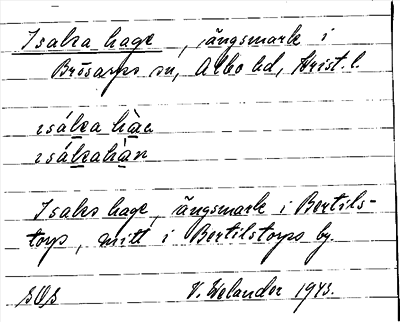 Isaka hage, ängsmark i
Brösarps sn, Albo hd, Krist. l.
isáka hàa
isákahàn
Isaks hage, ängsmark i Bertils-
torp, mitt i Bertilstorps by.
V. Welander 1943.